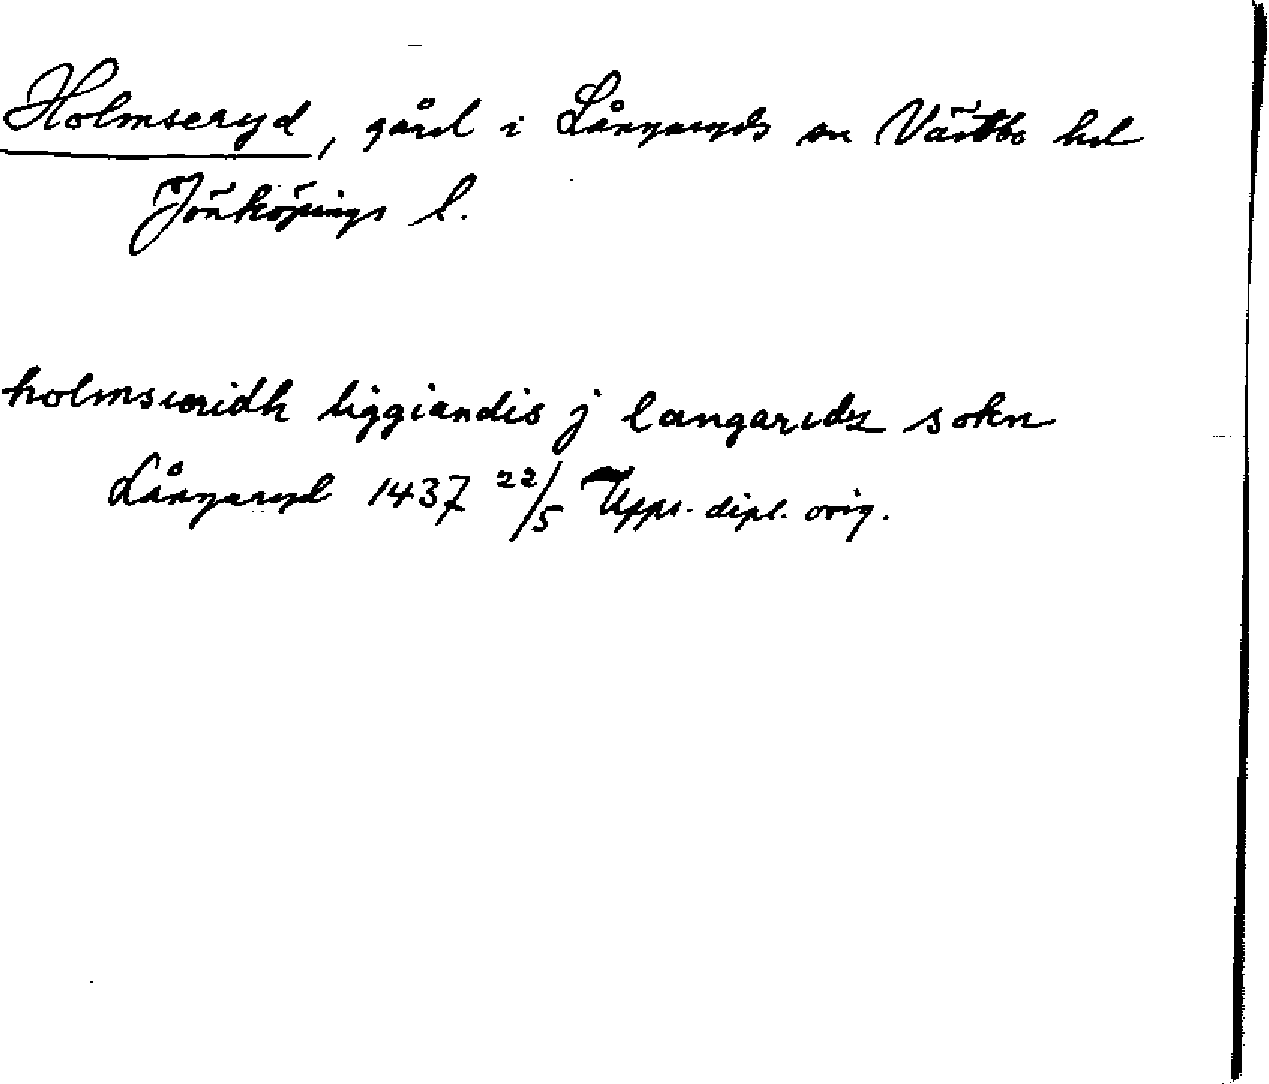 Holmseryd, gård i Långaryds sn Västbo hd
Jönköpings l.
holmsæridh liggiandis j langaridz sokn
Långaryd 1437 22/5 Upps. dipl. orig.